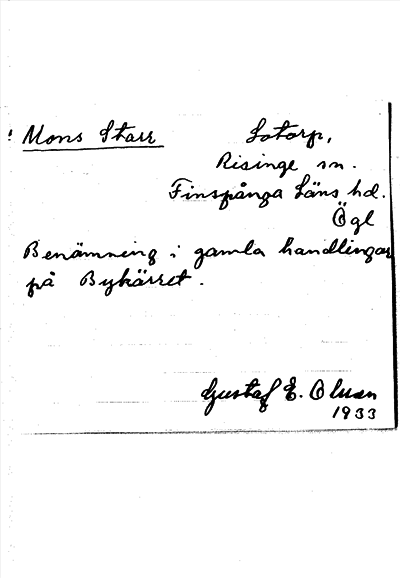 Mons Starr
Lotorp,
Risinge sn.
Finspånga Läns hd.
Ögl
Benämning i gamla handlingar
på Bykärret.
Gustaf E. Olsson
1933